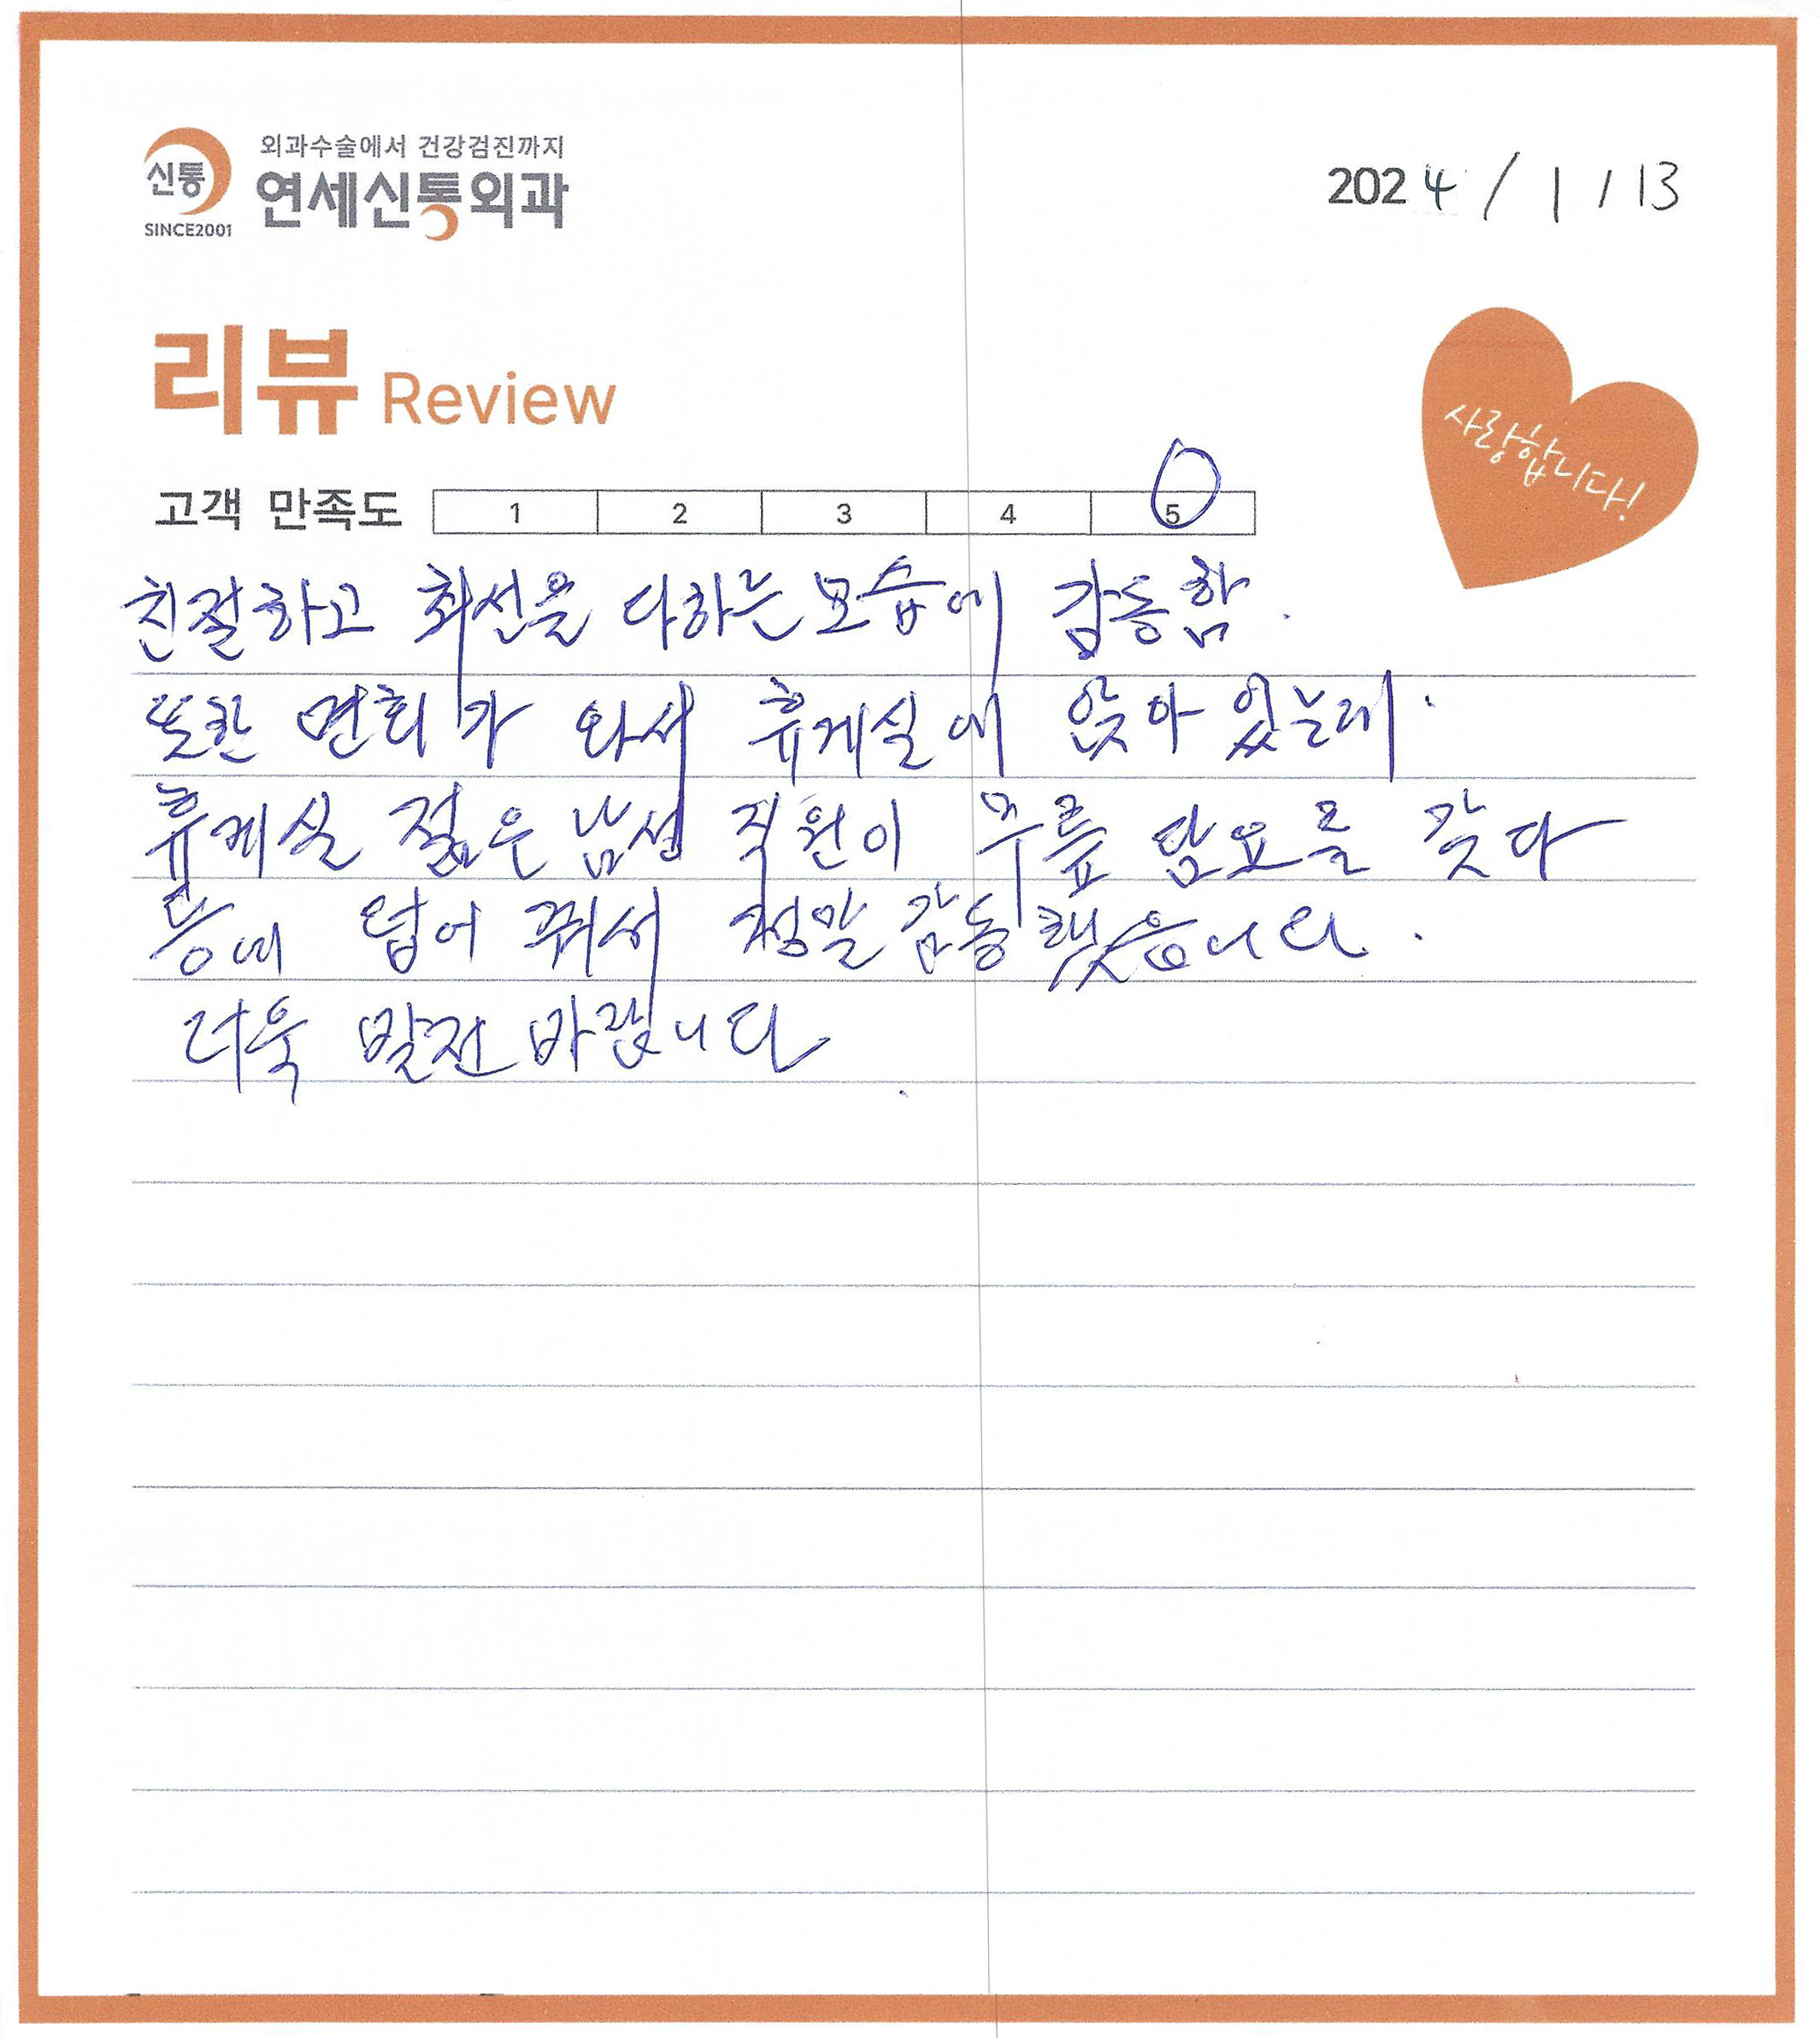 외과수술에서 건강검진까지
신통
연세신통외과
SINCE2001
2024 / 1 / 13
리뷰 Review
사랑합니다!
고객 만족도 1 2 3 4 5
친절하고 최선을 다하는 모습에 감동함.
또한 면회가 와서 휴게실에 앉아 있는데.
휴게실 젊은 남성 직원이 무릎 담요를 갖다
등에 덥어 줘서 정말 감동했읍니다.
더욱 발전 바랍니다.